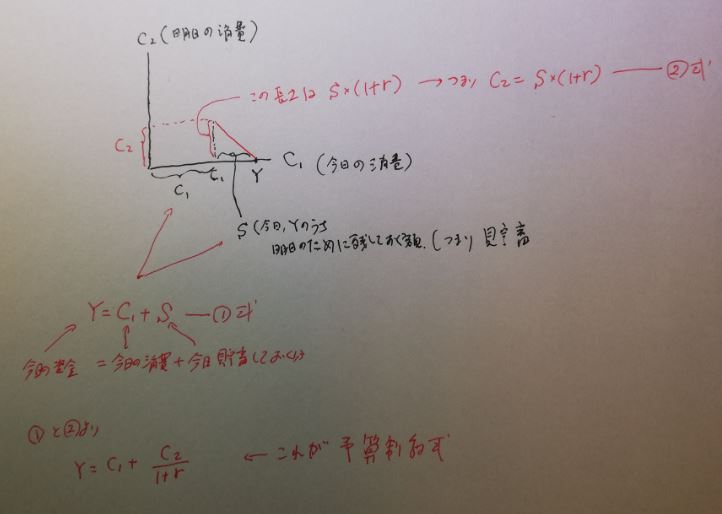 C₂(明日の消費)
この長さは S×(1+r) → つまり C₂ = S×(1+r) — ②式
C₂
C₁ (今日の消費)
C₁ C₁ Y
S (今日、Yのうち
明日のために残しておく額.(つまり 貯蓄
Y = C₁ + S — ①式
= 今日の消費 + 今日貯蓄しておく
①と②より
Y = C₁ + C₂/1+r ← これが 予算制約式